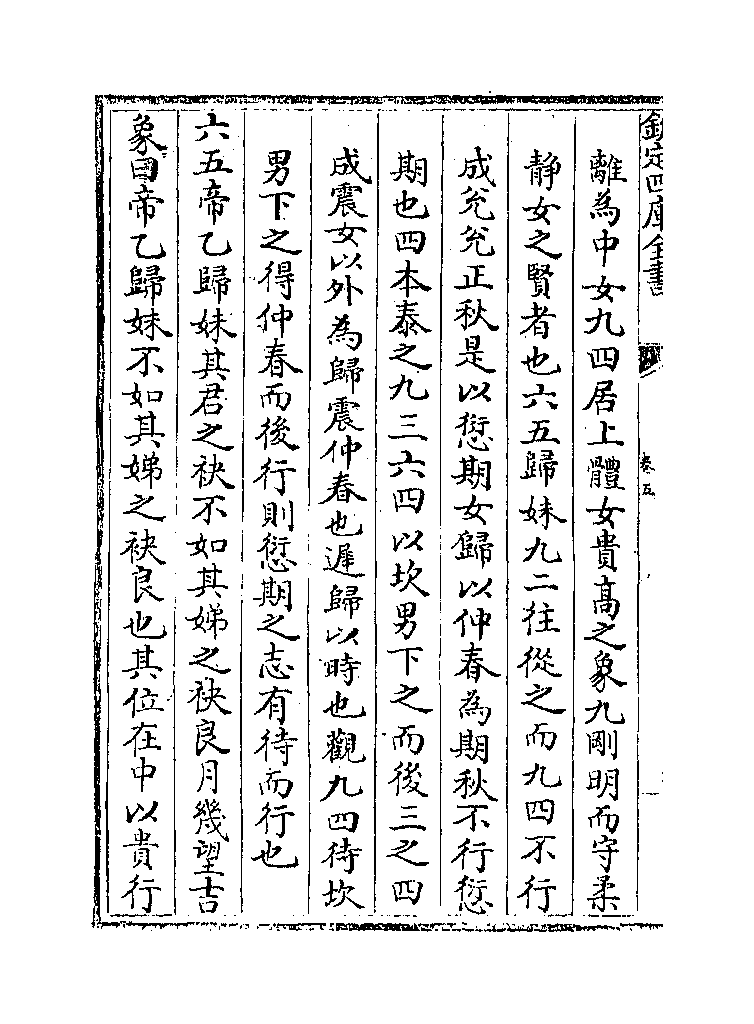 欽定四庫全書
卷五
離為中女九四居上體女貴高之象九剛明而守柔
静女之賢者也六五歸妹九二往從之而九四不行
成兊兊正秋是以愆期女歸以仲春為期秋不行愆
期也四本泰之九三六四以坎男下之而後三之四
成震女以外為歸震仲春也遲歸以時也觀九四待坎
男下之得仲春而後行則愆期之志有待而行也
六五帝乙歸妹其君之袂不如其娣之袂良月幾望吉
象曰帝乙歸妹不如其娣之袂良也其位在中以貴行